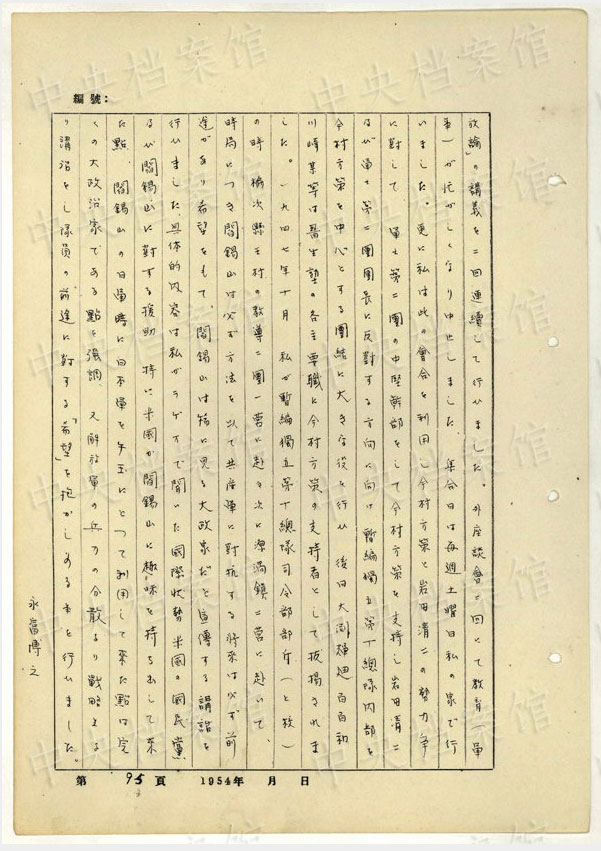 編號：
政論」の講義を二回連續して行ひました。外座談會二回にて教育（軍
事）が忙がしくなり中止しました。集合日は毎週土曜日私の家で行
いました。更に私は此の會合を利用し今村方策と岩田清一の勢力争
に対して 軍士第二團の中堅幹部をして今村方策を支持し岩田清一
及び軍士第二團團長に反對する方向に向け暫編獨立第十總隊内部を
今村方策を中心とする團結に大きな役を行ひ 後日
川崎 は の各主要職に今村方策の支持者として抜擢されま
した。一九四七年十月 私が暫編獨立第十總隊司令部部付（と教）
の時 楡次縣 村の教導二團一營に赴き次に 鎮二營に赴いて、
時局につき閻錫山は必ず方法を以て共産軍に對抗する将来は必ず前
途があり希望をもて、閻錫山は稀に見る大政家だと宣傳する講話を
行ひました。具体的内容は私がラヂオで聞いた國際狀勢 米國の國民黨
及び閻錫山に對する援助 特に米國が閻錫山に極味を持ち出して来
た點、閻錫山の日軍時に日本軍を手玉にとって利用して来た點は完
くの大政治家である點を强調、又解放軍の兵力の分散より戰略上よ
り講話をし隊員の、前途に對する「希望」を抱かしめる事を行ひました。
永富博之
第 95 頁 1954年 月 日
中央档案馆